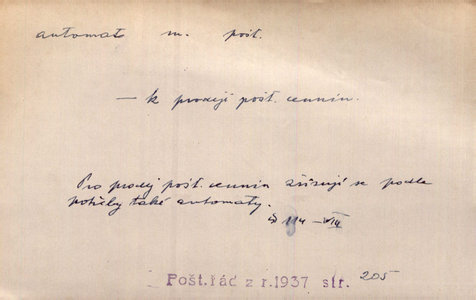 automat m. pošt.
— k prodeji pošt. cennin.
Pro prodej pošt. cennin zřizují se podle
potřeby také automaty.
114 – VII/4
Pošt. řád z r. 1937 str. 205